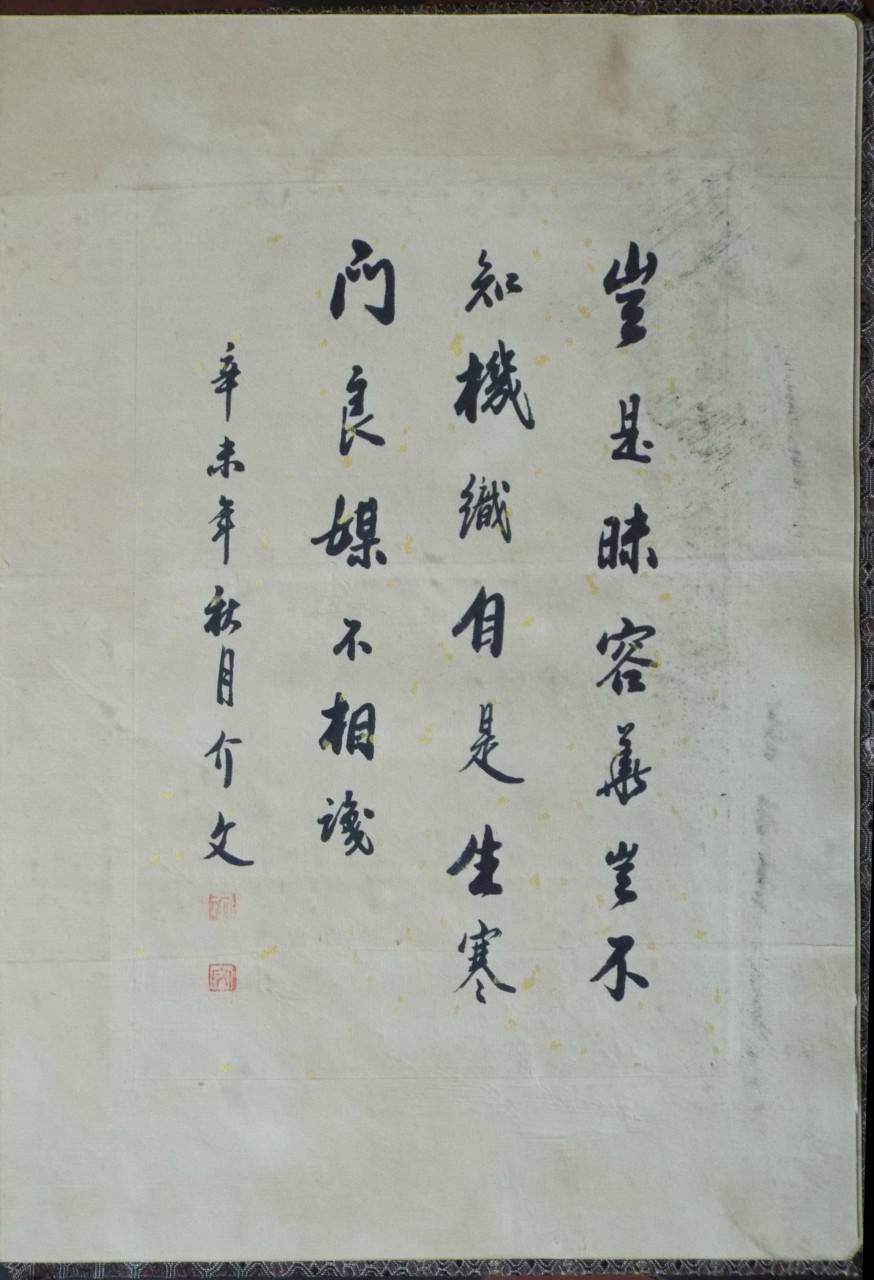 豈是昧容華豈不
知機織自是生寒
門良媒不相識
辛未年秋月介文